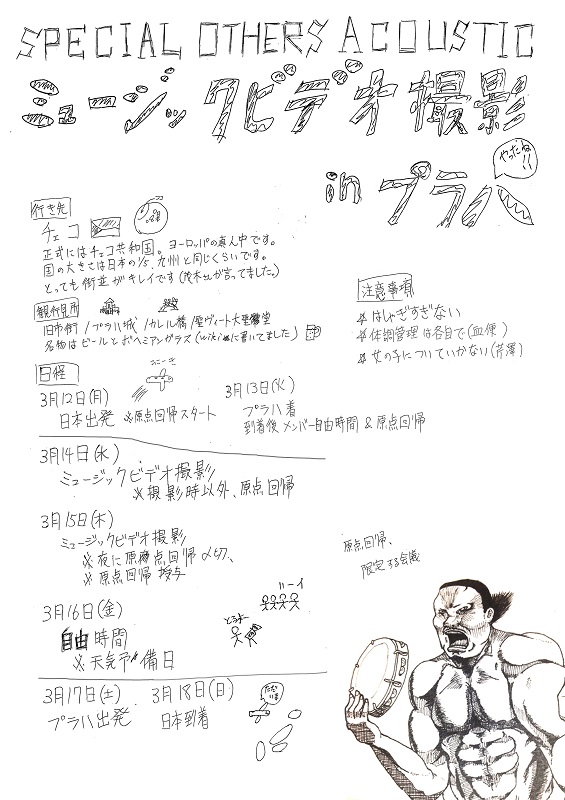 SPECIAL OTHERS ACOUSTIC
ミュージックビデオ撮影
やったね!!
in プラハ
行き先
チェコ
正式にはチェコ共和国。ヨーロッパの真ん中です。
国の大きさは日本の1/5、九州と同じくらいです。
とっても街並がキレイです(茂木さんが言ってました。)
観光名所
旧市街/プラハ城/カレル橋/聖ヴィート大聖堂
名物はビールとボヘミアンガラス(wikiに書いてました)
注意事項
☆はしゃぎすぎない
☆体調管理は各自で(血便)
☆女の子についていかない(芹澤)
日程
3月12日(月)
日本出発 ※原点回帰スタート
3月13日(火)
プラハ着
到着後メンバー自由時間&原点回帰
3月14日(水)
ミュージックビデオ撮影
※撮影時以外、原点回帰
3月15日(木)
ミュージックビデオ撮影
※夜に原点回帰〆切、
※原点回帰授与
原点回帰、
限定する会議
3月16日(金)
自由時間
※天気予備日
3月17日(土)
プラハ出発
3月18日(日)
日本到着